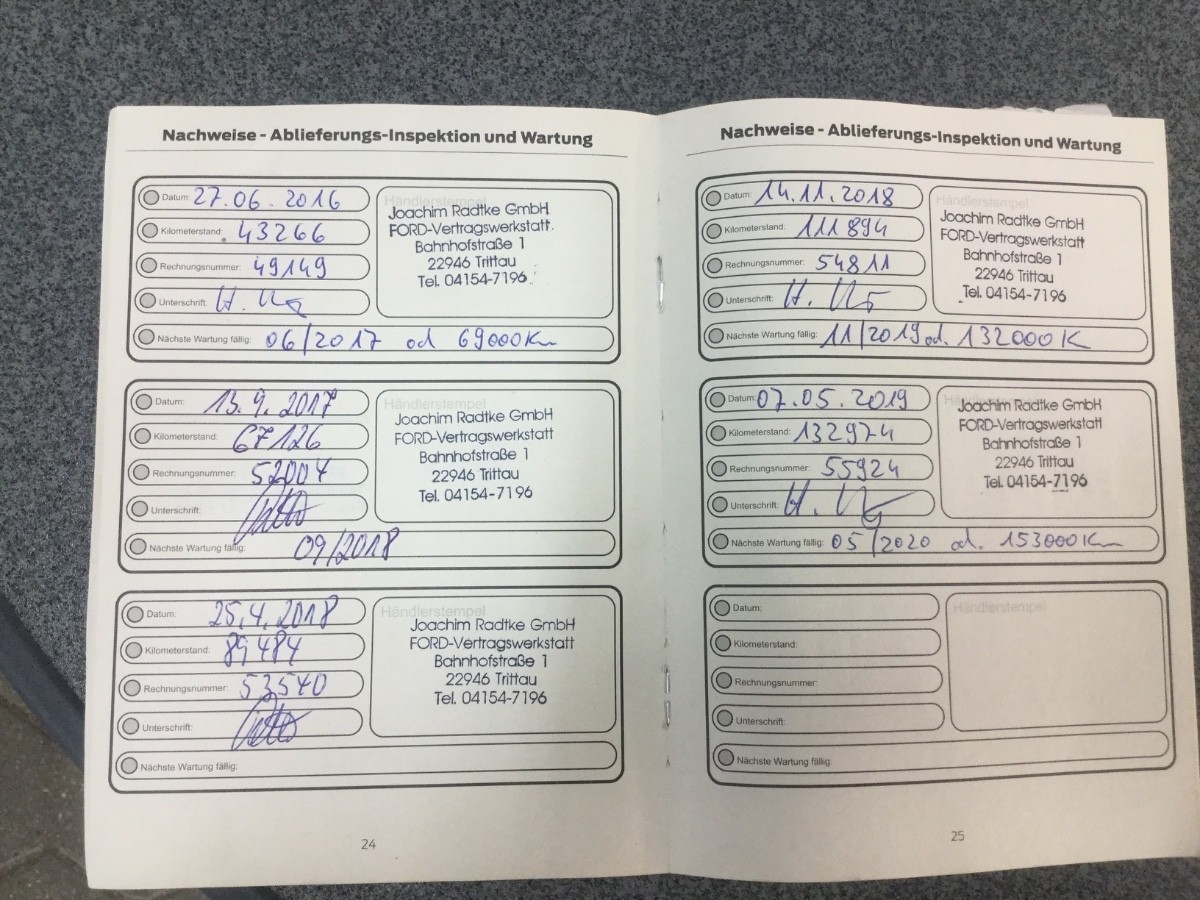 Nachweise - Ablieferungs-Inspektion und Wartung
Datum: 27.06.2016
Kilometerstand: 43266
Rechnungsnummer: 49149
Unterschrift: H.
Nächste Wartung fällig: 06/2017 od 69000Km
Händlerstempel
Joachim Radtke GmbH
FORD-Vertragswerkstatt
Bahnhofstraße 1
22946 Trittau
Tel. 04154-7196
Datum: 13.9.2017
Kilometerstand: 67126
Rechnungsnummer: 52004
Unterschrift:
Nächste Wartung fällig: 09/2018
Händlerstempel
Joachim Radtke GmbH
FORD-Vertragswerkstatt
Bahnhofstraße 1
22946 Trittau
Tel. 04154-7196
Datum: 25.4.2018
Kilometerstand: 89484
Rechnungsnummer: 53540
Unterschrift:
Nächste Wartung fällig:
Händlerstempel
Joachim Radtke GmbH
FORD-Vertragswerkstatt
Bahnhofstraße 1
22946 Trittau
Tel. 04154-7196
24
Nachweise - Ablieferungs-Inspektion und Wartung
Datum: 14.11.2018
Kilometerstand: 111894
Rechnungsnummer: 54811
Unterschrift: H.
Nächste Wartung fällig: 11/2019 od. 132000K
Händlerstempel
Joachim Radtke GmbH
FORD-Vertragswerkstatt
Bahnhofstraße 1
22946 Trittau
Tel. 04154-7196
Datum: 07.05.2019
Kilometerstand: 132974
Rechnungsnummer: 55924
Unterschrift: H.
Nächste Wartung fällig: 05/2020 od. 153000Km
Händlerstempel
Joachim Radtke GmbH
FORD-Vertragswerkstatt
Bahnhofstraße 1
22946 Trittau
Tel. 04154-7196
Datum:
Kilometerstand:
Rechnungsnummer:
Unterschrift:
Nächste Wartung fällig:
Händlerstempel
25